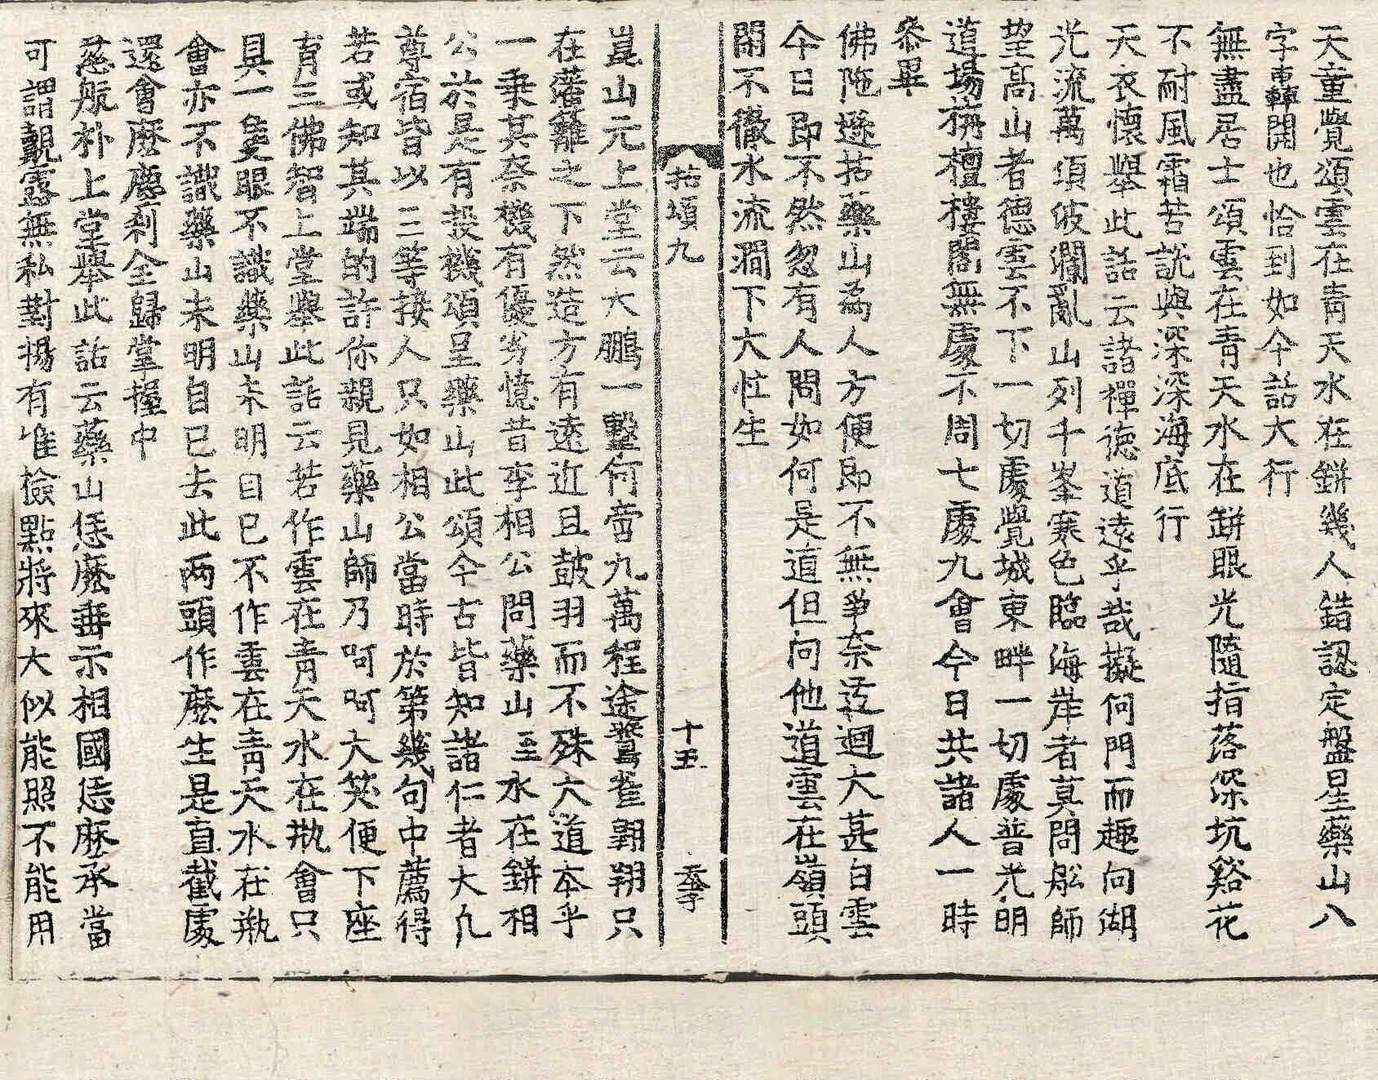 天童覺頌雲在青天水在缾幾人錯認定盤星藥山八
字轟開也恰到如今話大行
無盡居士頌雲在青天水在缾眼光隨指落深坑谿花
不耐風霜苦說與深深海底行
天衣懷舉此話云諸禪德道遠乎哉擬何門而趣向湖
光流萬頃波瀾亂山列千峯寒色臨海岸者莫問舩師
望高山者德雲不下一切處覺城東畔一切處普光明
道場栴檀樓閣無處不周七處九會今日共諸人一時
叅畢
佛陁遜拈藥山為人方便即不無爭奈迂迴大甚白雲
今日即不然忽有人問如何是道但向他道雲在嶺頭
閑不徹水流澗下大忙生
拈頌九
十五
崑山元上堂云大鵬一擊何啻九萬程途鷰雀翺翔只
在藩籬之下然造方有遠近且皷羽而不殊大道本乎
一乗其奈機有優劣憶昔李相公問藥山至水在缾相
公於是有投機頌呈藥山此頌今古皆知諸仁者大凡
尊宿皆以三等接人只如相公當時於第幾句中薦得
若或知其端的許你親見藥山師乃呵呵大笑便下座
育王佛智上堂舉此話云若作雲在青天水在瓶會只
具一隻眼不識藥山未明自已不作雲在青天水在瓶
會亦不識藥山未明自已去此两頭作麽生是直截處
還會麽塵刹全歸掌握中
慈航朴上堂舉此話云藥山恁麽垂示相國恁麽承當
可謂覿露無私對揚有准撿點將來大似能照不能用